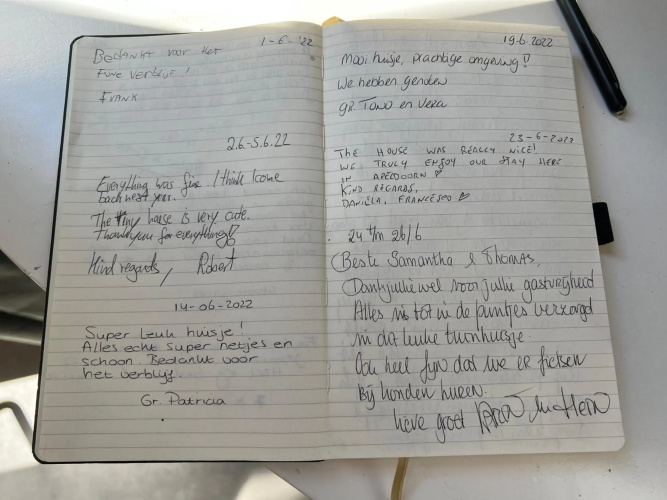 1-6-'22
Bedankt voor het
Fijne verblijf!
Frank
2.6.-5.6.22
Everything was fine. I think I come
back next year.
The tiny house is very cute.
Thank you for everything!
Kind regards, Robert
14-06-2022
Super leuk huisje!
Alles echt super netjes en
schoon. Bedankt voor
het verblijf.
Gr. Patricia
19.6.2022
Mooi huisje, prachtige omgeving!
We hebben genoten
gr. Tono en Vera
23-6-2022
The house was really nice!
We truly enjoy our stay here
in Apeldoorn
Kind regards,
Daniela, Francesco
24 t/m 26/6
Beste Samantha & Thomas,
Dank jullie wel voor jullie gastvrijheid
Alles is tot in de puntjes verzorgd
in dat leuke tuinhuisje.
Ook heel fijn dat we er fietsen
bij konden huren.
lieve groet